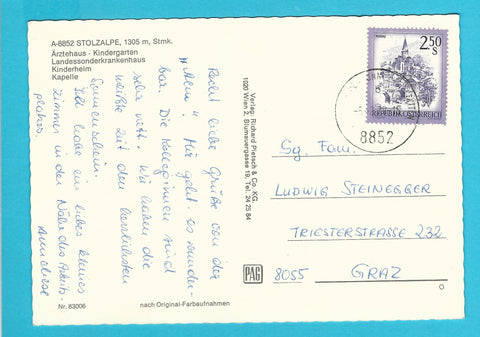 A-8852 STOLZALPE, 1305 m, Stmk.
Ärztehaus - Kindergarten
Landessonderkrankenhaus
Kinderheim
Kapelle
Recht liebe Grüße von der
"Alm". Mir geht es wunder-
bar. Die Koleginnen sind
sehr nett. Wir haben die
meiste Zeit den herrlichsten
Sonnenschein.
Ich habe ein liebes kleines
Zimmer in der Nähe des Arbeits-
platzes.
Anneliese
Nr. 83006
nach Original-Farbaufnahmen
Verlag: Richard Pietsch & Co. KG.
1020 Wien 2, Blumauergasse 19, Tel. 24 25 84
PAG
2.50
S
REPUBLIK ÖSTERREICH
8852
Sg. Fam.
LUDWIG STEINEGGER
TRIESTERSTRASSE 232
8055 GRAZ